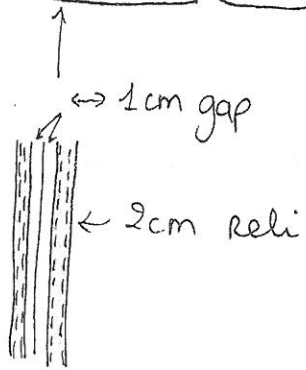 ↔ 1cm gap
← 2cm Reli